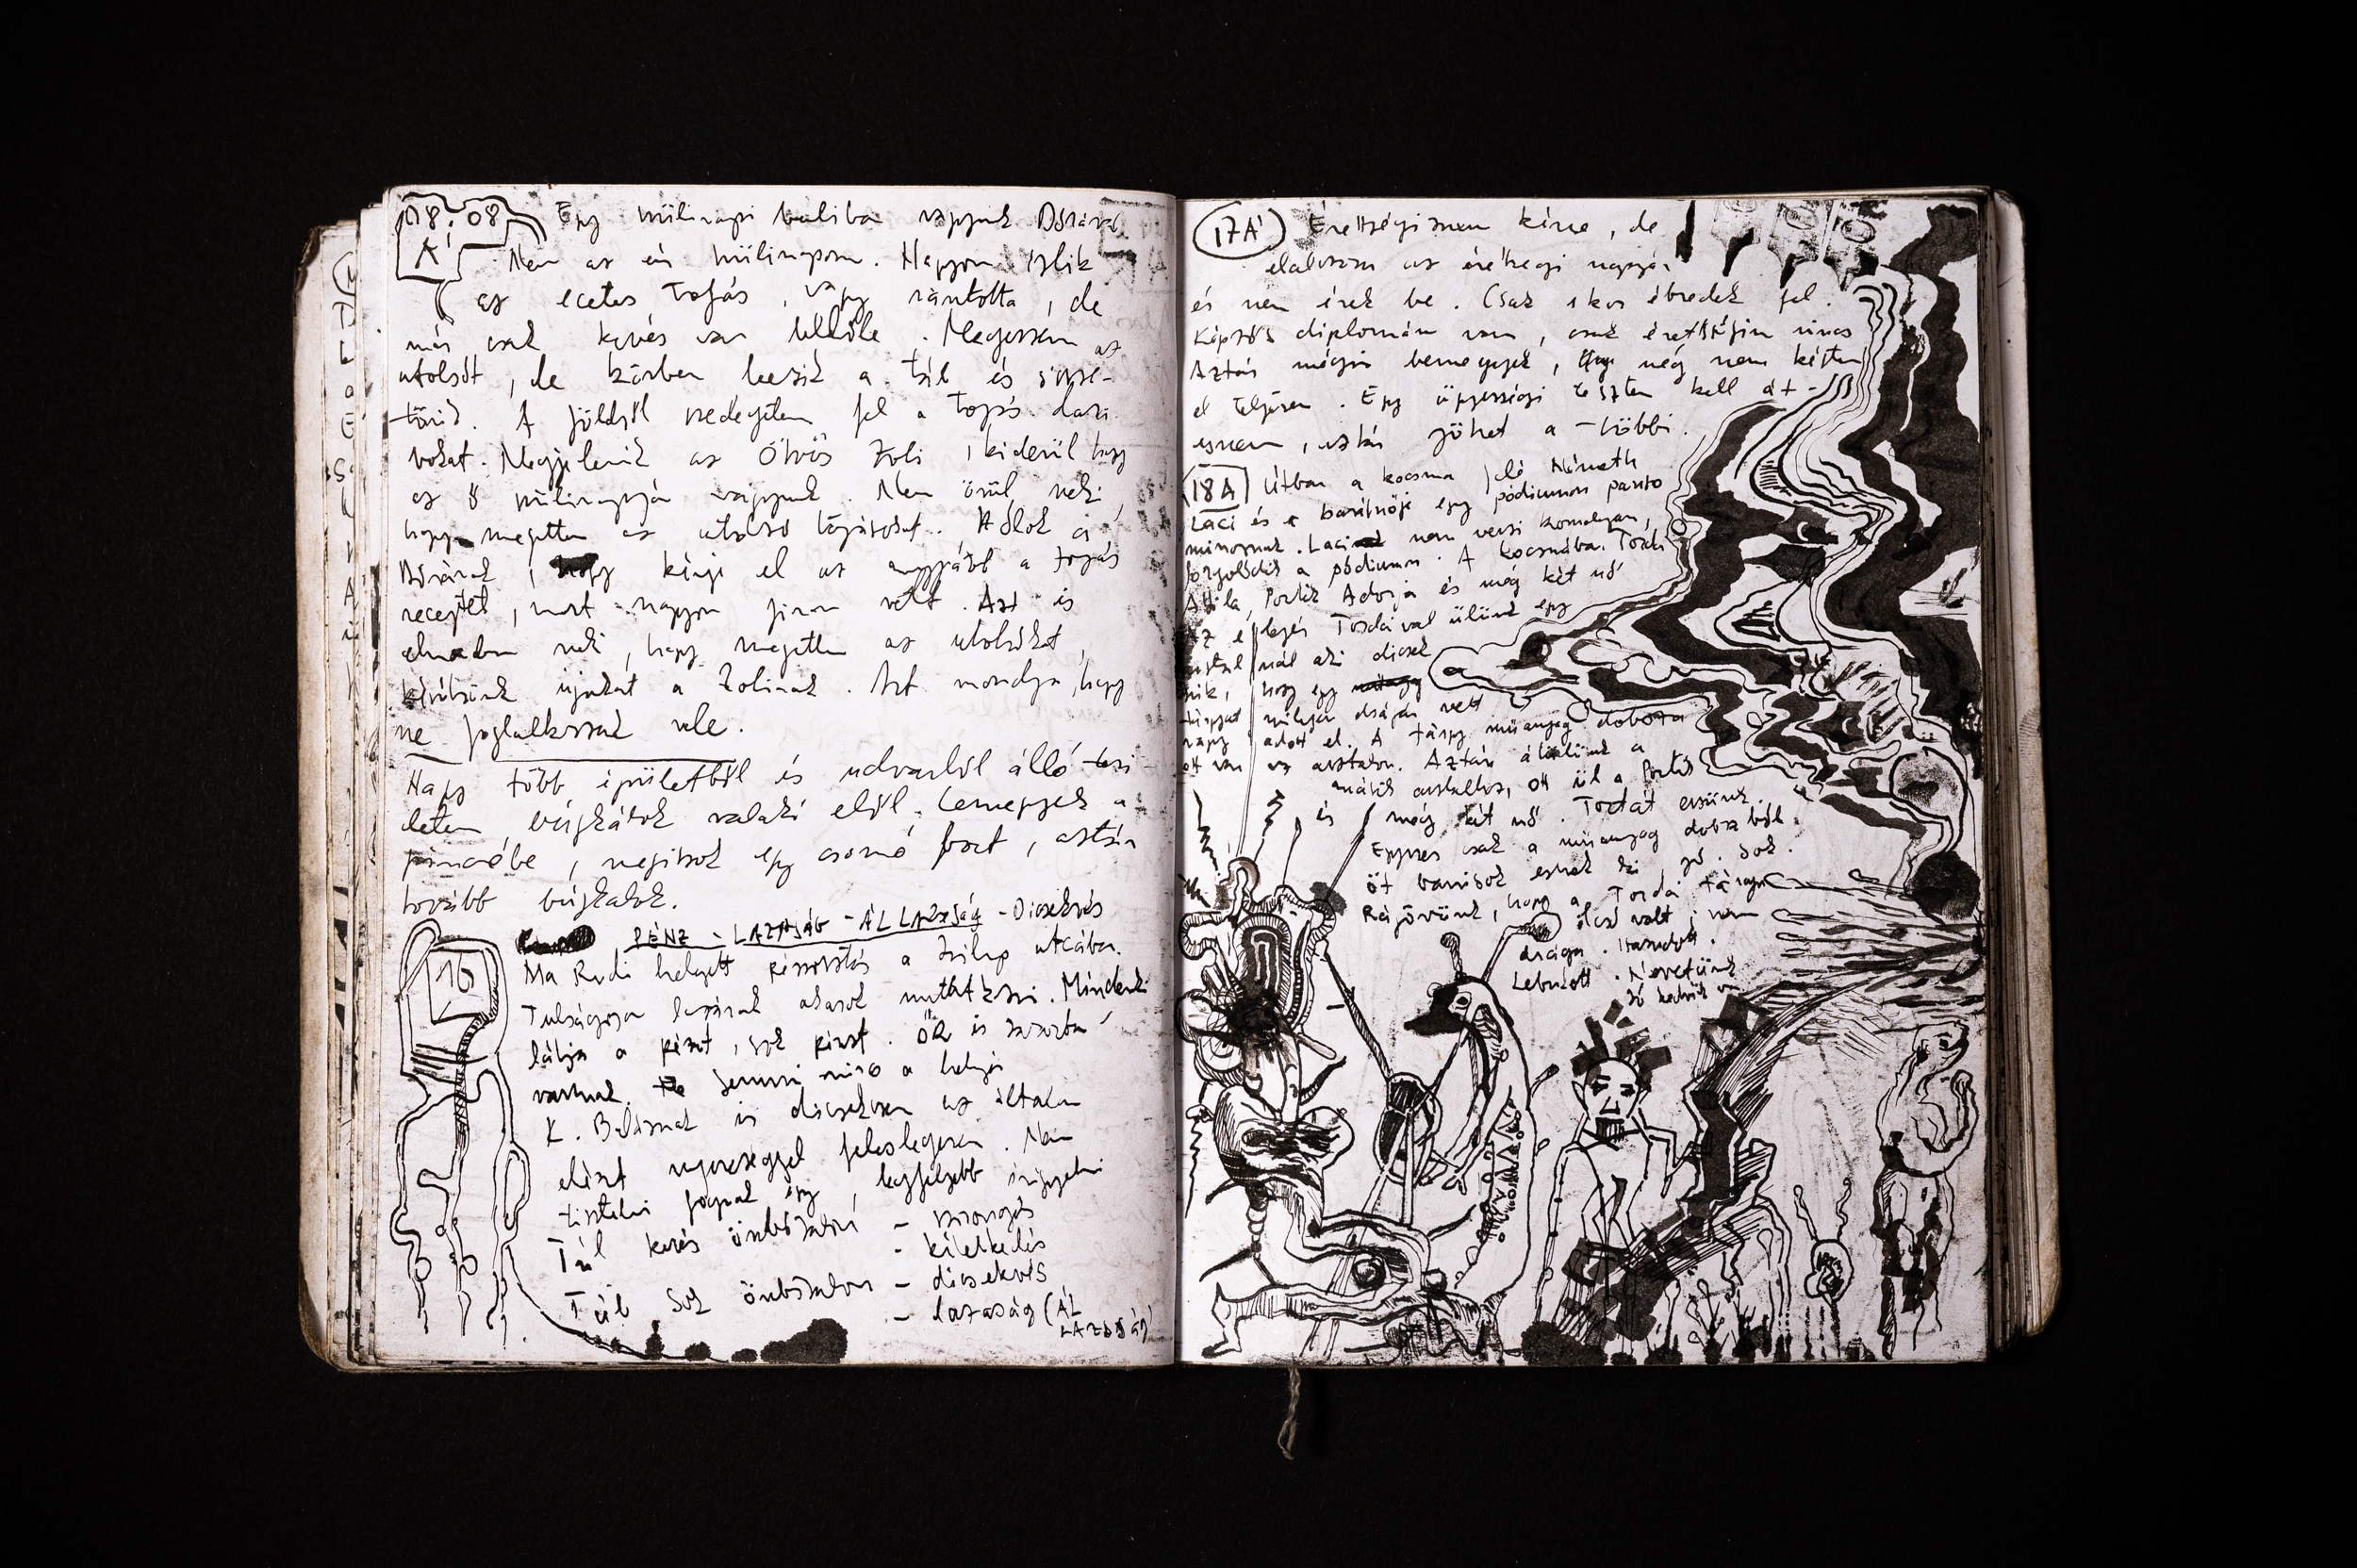 08.08
Á
Egy szülinapi buliba vagyunk Dórával.
Nem az én szülinapom. Nagyon ízlik
az ecetes tojás, vagy rántotta, de
már csak kevés van belőle. Megeszem az
utolsót, de közben leesik a tál és össze-
törik. A földről szedegetem fel a tojás dara
vokat. Megjelenik az Ötvös Zoli, kiderül hogy
az ő szülinapján vagyunk. Nem örül neki,
hogy megettem az utolsó tojásokat.
Dórának, hogy kérje el az anyjától a tojás
receptet, mert nagyon finom volt. Azt is
elmondom neki, hogy megettem az utolsókat,
újakat a Zolinak. Azt mondja, hogy
ne foglalkozzak vele.
Nagy több épületből és udvarból álló
bújkálok valaki elől. Lemegyek a
pincébe, megiszok egy csomó, aztán
tovább bújkálok.
PÉNZ - LAZASÁG - ÁLLAZASÁG - Dicsekvés
16
Ma Rudi helyett a utcába.
Túlságosan lazának akarok mutatkozni. Mindenki
látja a pénzt, sok pénzt. Ők is
várnak. Semmi nincs a helyén
K. Balázsnak is dicsekszem az általam
elért nyereséggel feleslegesen. Nem
tisztelni fognak így, legfeljebb irigyelni
Túl kevés önbizalom - szorongás
- kételkedés
Túl sok önbizalom - dicsekvés
- lazaság (ÁL
LAZASÁG)
17Á
Érettségiznem kéne, de
elalszom az érettségi napján
és nem érek be. Csak 1 kor ébredek fel.
Képzős diplomám van, csak érettségim nincs
Aztán mégis bemegyek, még nem késtem
el teljesen. Egy ügyességi teszten kell át-
esnem, aztán jöhet a többi.
18Á
Útban a kocsma felé Németh
Laci és a barátnője egy pódiumon panto
mimoznak. Laci nem veszi komolyan,
a pódiumon. A kocsmában Tordai
Attila, Portik Adorján és még két nő
Az elején Tordaival ülünk egy
asztalnál aki dicsek
szik, hogy egy
tárgyat milyen drágán vett
vagy adott el. A tárgy műanyag doboza
ott van az asztalon. Aztán átülünk a
másik asztalhoz, ott ül a Portik
és még két nő. Tortát eszünk.
Egyszer csak a műanyag dobozból
öt esnek ki
Rájövünk, hogy a Tordai tárgya
olcsó volt, nem
drága. Hazudott.
Lebukott. Nevetünk